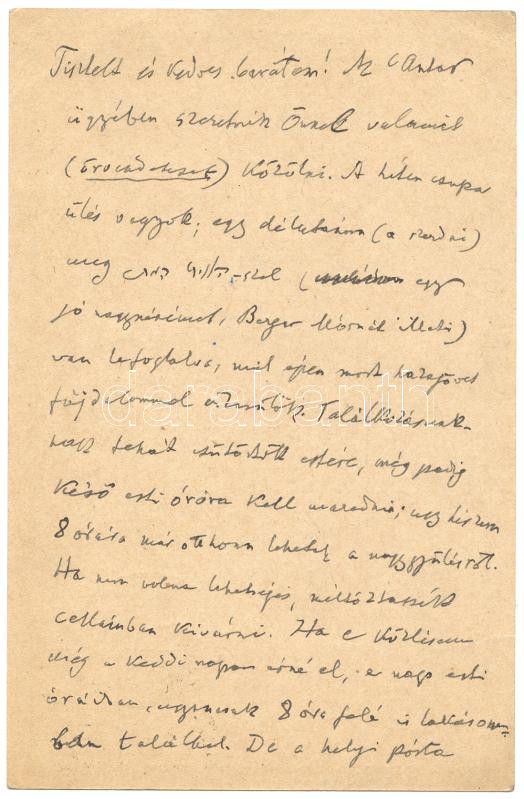 Tisztelt és kedves barátom! Az Antal
ügyében szeretnék Önnek valamit
(örvendeteset) közölni. A héten csupa
ülés vagyok; egy délutánom (a szerdai)
meg -szel (egy
jó nagynénémet, Berger Mórnét illeti)
van lefoglalva, mit épen most hazajövet
fájdalommal értesülök. Találkozásunk-
nak tehát csütörtök estére, még pedig
késő esti órára kell maradnia; úgy hiszem
8 órára már otthon lehetek a nagygyűlésről.
Ha nem volna lehetséges, méltóztassék
cellámban kivárni. Ha e közlésem
még a keddi napon érné el, e napo esti
óráiban, úgyancsak 8 óra felé is lakásom-
ban találhat. De a helyi pósta
darabanth